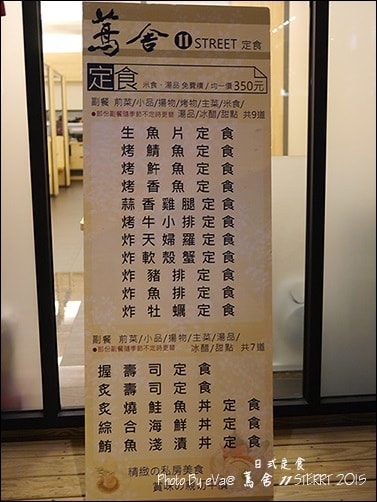 蔦舍 11 STREET 定食
定食 米食、湯品 免費續 / 均一價350元
副餐 前菜/小品/揚物/烤物/主菜/米食/
●部份副餐隨季節不定時更替 湯品/冰醋/甜點 共9道
生魚片定食
烤鯖魚定食
烤魽魚定食
烤香魚定食
蒜香雞腿定食
烤牛小排定食
炸天婦羅定食
炸軟殼蟹定食
炸豬排定食
炸魚排定食
炸牡蠣定食
副餐 前菜/小品/揚物/主菜/湯品/
●部份副餐隨季節不定時更替 冰醋/甜點 共7道
握壽司定食
炙壽司定食
炙燒鮭魚丼定食
綜合海鮮丼定食
鮪魚淺漬丼定食
精緻の私房美食
日式定食
Photo By eVa@ 蔦舍 11 STERRT 2015